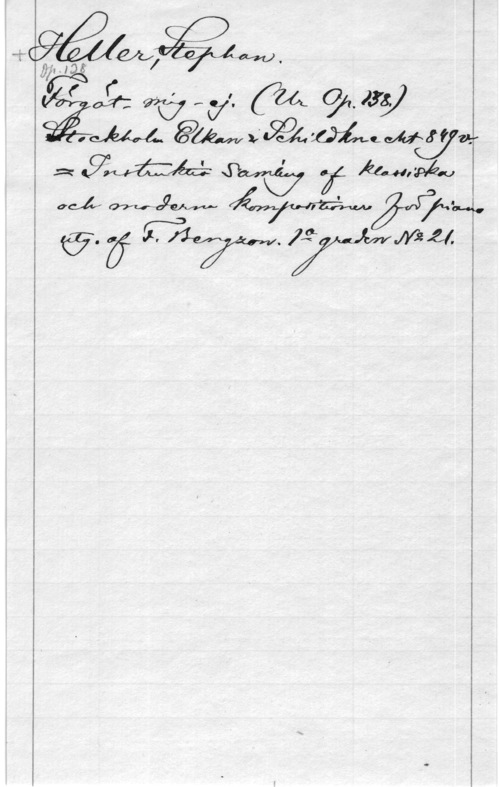 + Heller, Stephan.
Op. 138
Förgät-mig-ej. (Ur Op. 138.)
Stockholm Elkan & Schildknecht 849 v.
= Instruktiv Samling af klassiska
och moderna kompositioner för piano
utg. af F. Bengzon. 1ª graden № 21.